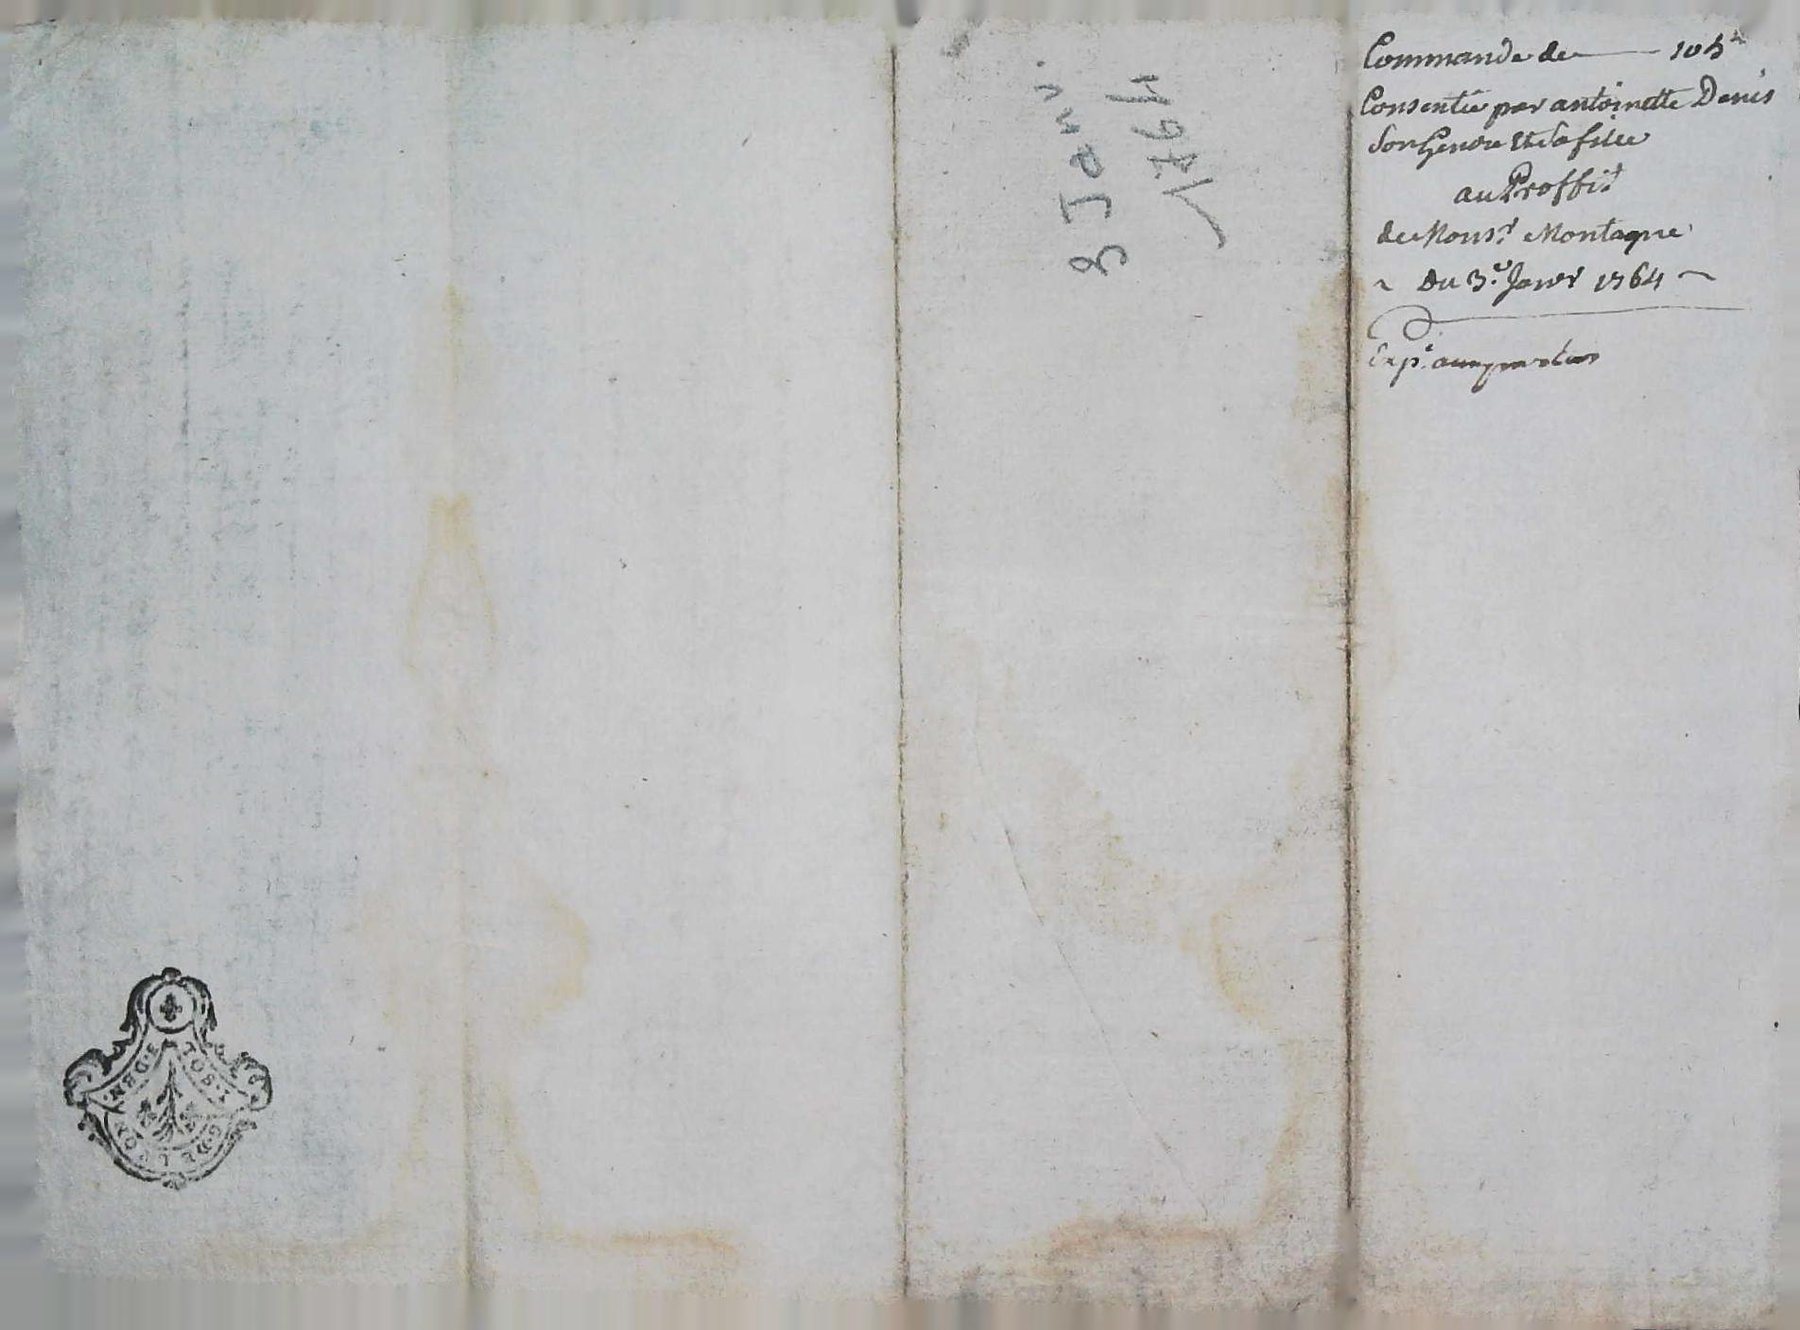 Commande de 105ᵗ
Consentie par antoinette Denis
Son Gendre et Sa fille
au Proffi.ᵗ
de Mons.ʳ Montagne
~ Du 3.ᵉ Janvʳ 1764 ~
Exp.ᵉ aux parties
3 Janv.
1764